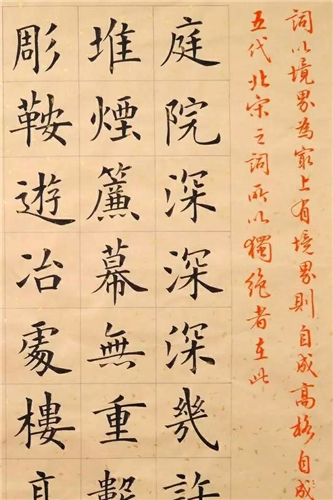 詞以境界為最上有境界則自成高格自成
五代北宋之詞所以獨絕者在此
庭院深深深幾許
堆煙簾幕無重數
彫鞍遊冶處樓高